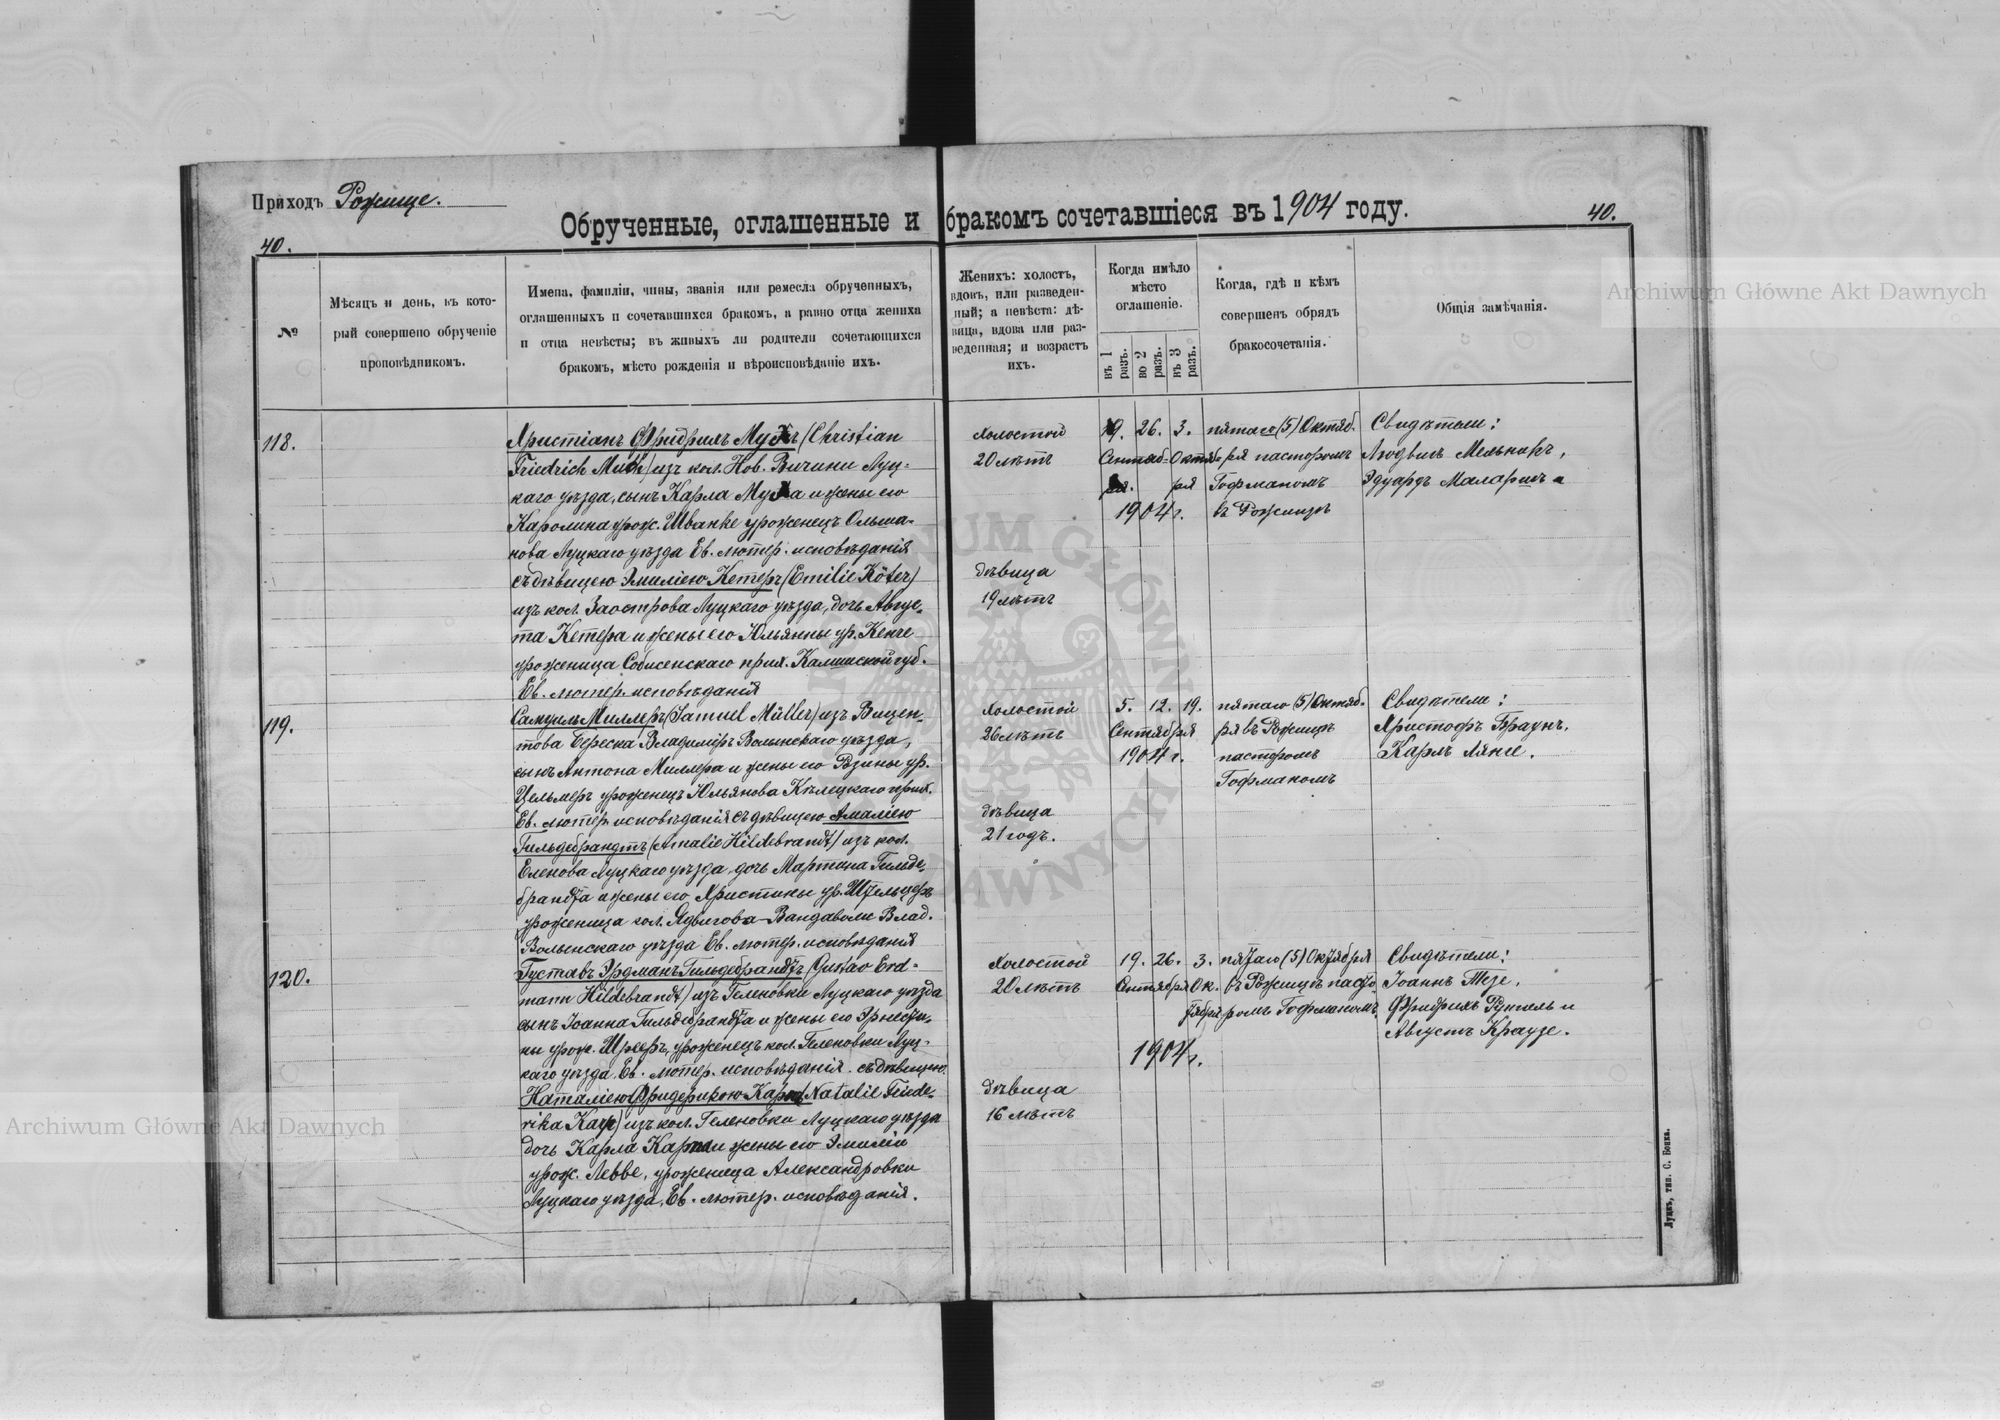 Приходъ Рожище.
Обрученные, оглашенные и бракомъ сочетавшіеся въ 1904 году.
40.
40.
№
Мѣсяцъ и день, въ кото-
рый совершено обрученіе
проповѣдникомъ.
Имена, фамиліи, чины, званія или ремесла обрученныхъ,
оглашенныхъ и сочетавшихся бракомъ, а равно отца жениха
и отца невѣсты; въ живыхъ ли родители сочетающихся
бракомъ, мѣсто рожденія и вѣроисповѣданіе ихъ.
Женихъ: холостъ,
вдовъ, или разведен-
ный; а невѣста: дѣ-
вица, вдова или раз-
веденная; и возрастъ
ихъ.
Когда имѣло
мѣсто
оглашеніе.
въ 1
разъ.
во 2
разъ.
въ 3
разъ.
Когда, гдѣ и кѣмъ
совершенъ обрядъ
бракосочетанія.
Общія замѣчанія.
118.
Христіанъ Фридрихъ (Christian
Friedrich Muth) изъ кол. Нов. Вичини Луц-
каго уѣзда, сынъ Карла и жены его
Каролина урож. Шванке уроженецъ Ольша-
нова Луцкаго уѣзда Ев. лютер. исповѣданія
съ дѣвицею Эмиліею Кетеръ (Emilie Köter)
изъ кол. Заострова Луцкаго уѣзда, дочь Авгус-
та Кетера и жены его Юльянны ур. Кенче
уроженица прих. Калишской губ.
Ев. лютер. исповѣданія
Холостой
20 лѣтъ
дѣвица
19 лѣтъ
19. 26. 3.
Сентяб- Октяб-
ря. ря
1904 г.
пятаго (5) Октяб-
ря пасторомъ
Гофманомъ
въ Рожищѣ
Свидѣтели:
Людвигъ Мельникъ,
Эдуардъ
119.
Самуилъ Миллеръ (Samuel Müller) изъ Вицен-
това Береска Владимiръ Волынскаго уѣзда,
сынъ Антона Миллера и жены его Розины ур.
Цельмеръ уроженецъ Юльянова Кѣлецкаго прих.
Ев. лютер. исповѣданія съ дѣвицею Амаліею
Гильдебрандтъ (Amalie Hildebrandt) изъ кол.
Еленова Луцкаго уѣзда, дочь Мартина Гильде-
брандта и жены его Христины ур. Штельцеръ
уроженица кол. Ядвигова-Вандаволи Влад.
Волынскаго уѣзда Ев. лютер. исповѣданія
Холостой
26 лѣтъ
дѣвица
21 годъ.
5. 12. 19.
Сентября
1904 г.
пятаго (5) Октяб-
ря въ Рожищѣ
пасторомъ
Гофманомъ
Свидѣтели:
Христофъ Браунъ,
Карлъ Лянге.
120.
Густавъ Эрдманъ Гильдебрандтъ (Gustav Erd-
mann Hildebrandt) изъ Геленовки Луцкаго уѣзда
сынъ Іоанна Гильдебрандта и жены его Эрнести-
ны урож. уроженецъ кол. Геленовки Луц-
каго уѣзда, Ев. лютер. исповѣданія. съ дѣвицею
Наталіею Фридерикою (Natalie Friede-
rika изъ кол. Геленовки Луцкаго уѣзда
дочь Карла и жены его Эмиліи
урож. Левве, уроженица Александровки
Луцкаго уѣзда, Ев. лютер. исповѣданія.
Холостой
20 лѣтъ
дѣвица
16 лѣтъ
19. 26. 3.
Сентября Ок-
тября
1904 г.
пятаго (5) Октября
въ Рожищѣ пасто-
ромъ Гофманомъ.
Свидѣтели:
Іоаннъ Тезе,
Фридрихъ Рункель и
Августъ Краузе.
Луцкъ, тип. С. Бонка.
Archiwum Główne Akt Dawnych
Archiwum Główne Akt Dawnych